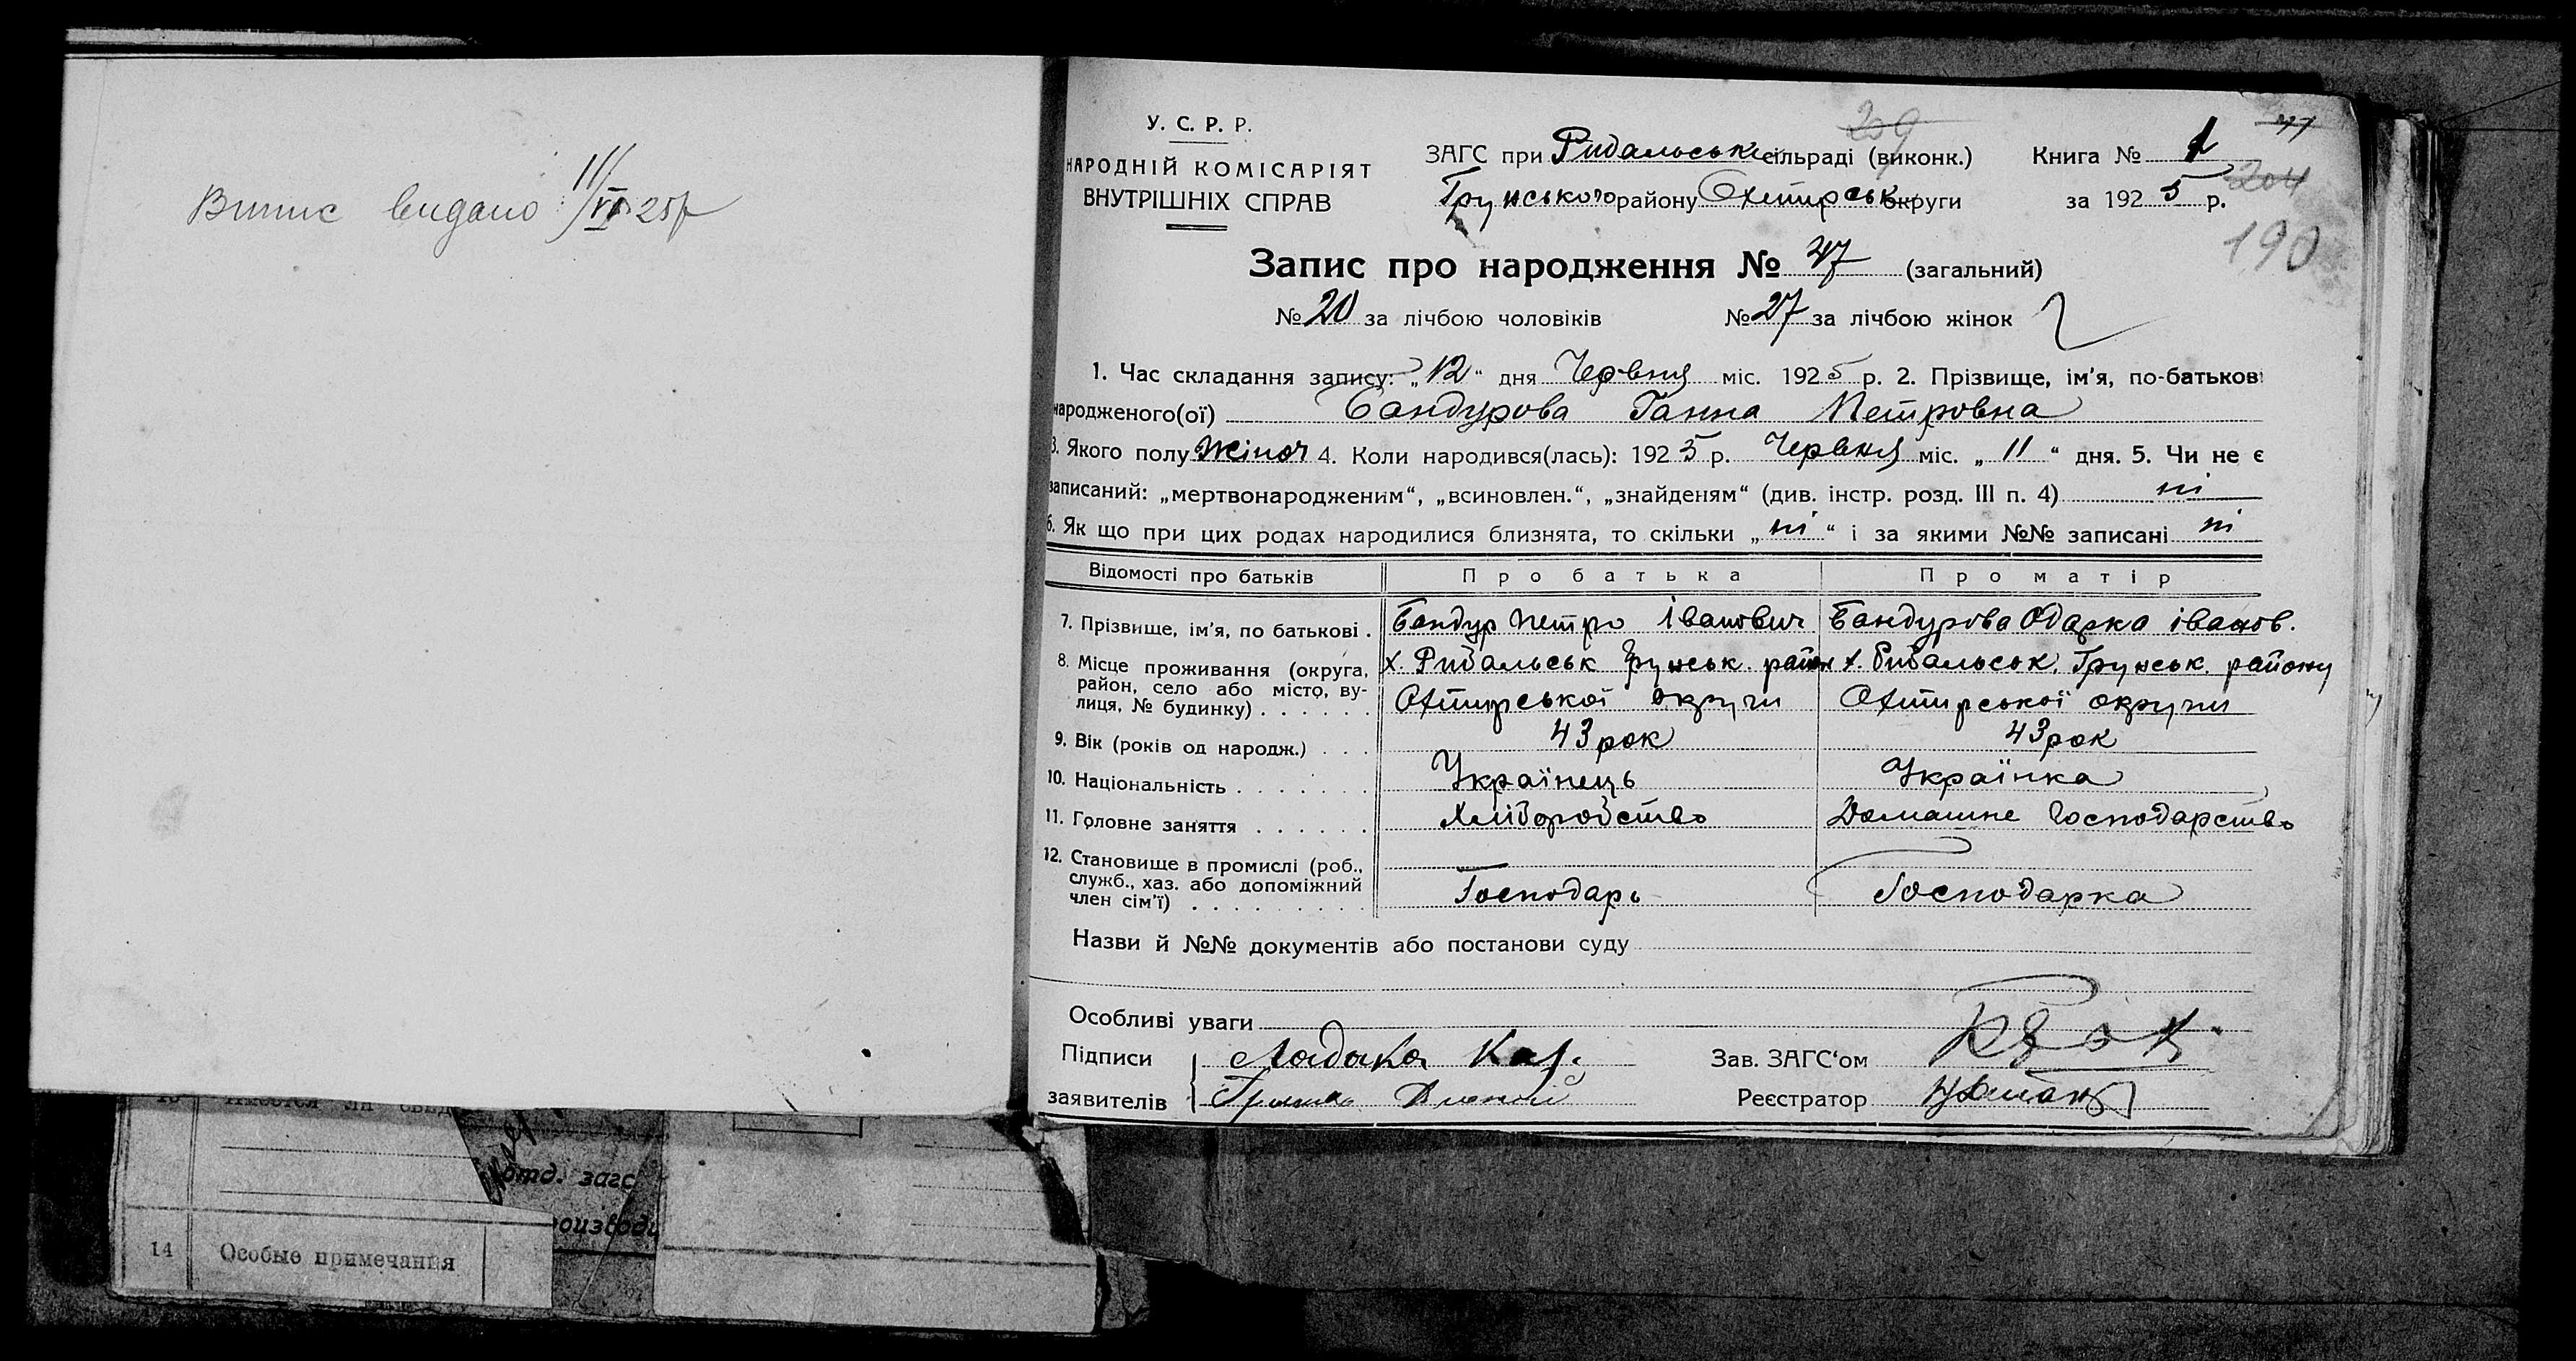 Випис видано 11/VI 25 р
У. С. Р. Р.
НАРОДНІЙ КОМІСАРІЯТ
ВНУТРІШНІХ СПРАВ
209
ЗАГС при Рибальськ сільраді (виконк.)
Грунського району Охтирськ округи
Книга № 1
за 1925 р.
204
190
Запис про народження № 47 (загальний)
№ 20 за лічбою чоловіків № 27 за лічбою жінок
1. Час складання запису: „12“ дня Червня міс. 1925 р. 2. Прізвище, ім’я, по-батькові
народженого(ої) Бандурова Ганна Петровна
3. Якого полу жіноч 4. Коли народився(лась): 1925 р. Червня міс. „11“ дня. 5. Чи не є
записаний: „мертвонародженим“, „всиновлен.“, „знайденям“ (див. інстр. розд. III п. 4) ні
6. Як що при цих родах народилися близнята, то скільки „ні“ і за якими №№ записані ні
Відомості про батьків Про батька Про матір
7. Прізвище, ім’я, по батькові . Бандур Петро Іванович Бандурова Одарка Іванов.
8. Місце проживання (округа, х. Рибальськ Грунськ. район х. Рибальськ. Грунськ. району
район, село або місто, ву-
лиця, № будинку) . . . . . . Охтирської округи Охтирської округи
9. Вік (років од народж.) . . . 43 рок 43 рок
10. Національність . . . . . . . Українець Українка
11. Головне заняття . . . . . . Хліборобство Домашне господарство
12. Становище в промислі (роб.,
служб., хаз. або допоміжний
член сім’ї) . . . . . . . . . Господарь Господарка
Назви й №№ документів або постанови суду
Особливі уваги
Підписи
заявителів
Зав. ЗАГС‘ом
Реєстратор
отд. загс
14 Особые примечания